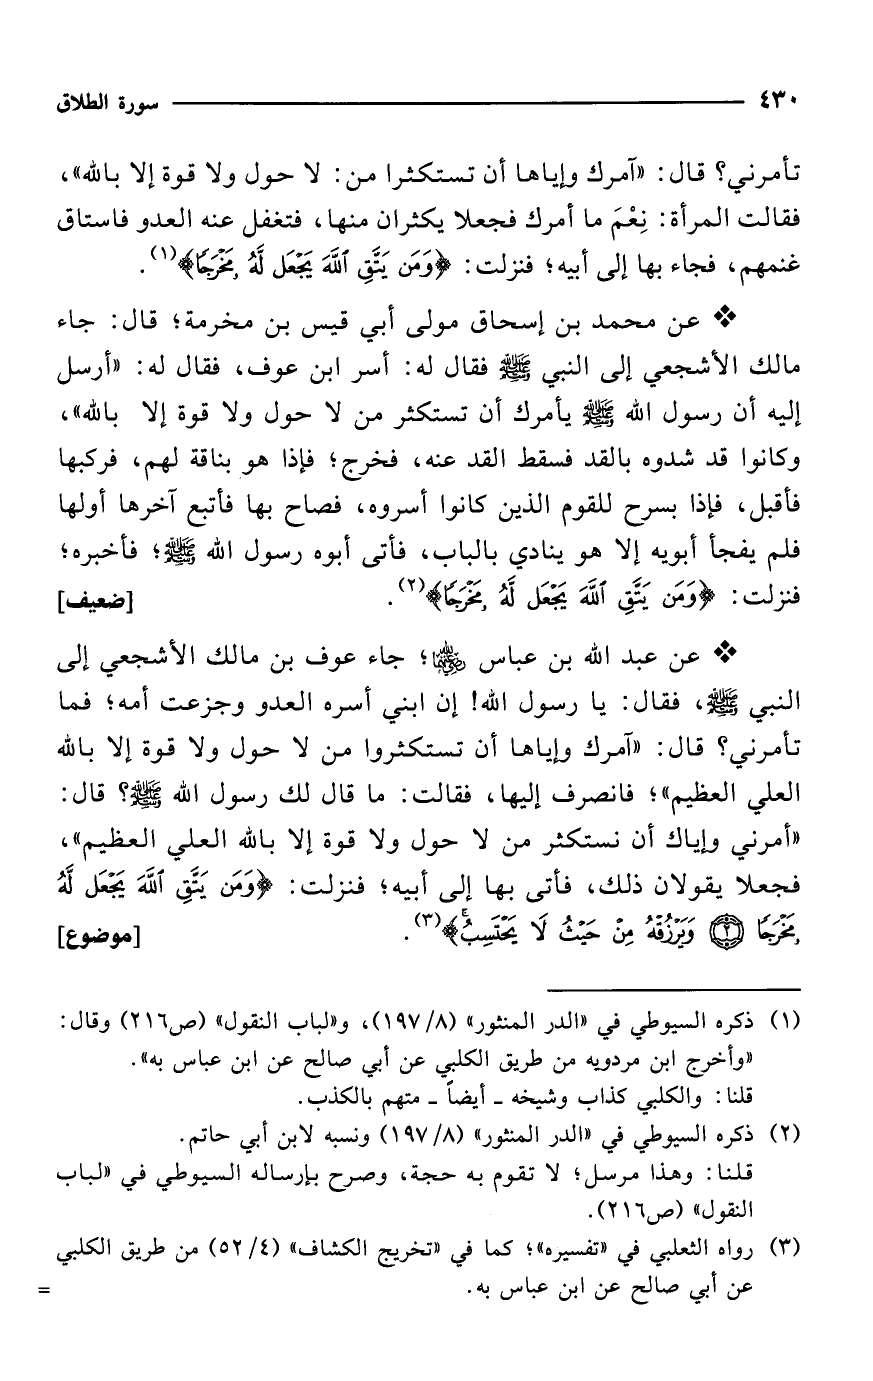 ٤٣٠ سورة الطلاق
تأمرني؟ قال: «آمرك وإياها أن تستكثرا من: لا حول ولا قوة إلا بالله»،
فقالت المرأة: نِعْمَ ما أمرك فجعلا يكثران منها، فتغفل عنه العدو فاستاق
غنمهم، فجاء بها إلى أبيه؛ فنزلت: ﴿وَمَن يَتَّقِ ٱللَّهَ يَجْعَل لَّهُۥ مَخْرَجًا﴾(١).
❖ عن محمد بن إسحاق مولى أبي قيس بن مخرمة؛ قال: جاء
مالك الأشجعي إلى النبي ﷺ فقال له: أسر ابن عوف، فقال له: «أرسل
إليه أن رسول الله ﷺ يأمرك أن تستكثر من لا حول ولا قوة إلا بالله»،
وكانوا قد شدوه بالقد فسقط القد عنه، فخرج؛ فإذا هو بناقة لهم، فركبها
فأقبل، فإذا بسرح للقوم الذين كانوا أسروه، فصاح بها فأتبع آخرها أولها
فلم يفجأ أبويه إلا هو ينادي بالباب، فأتى أبوه رسول الله ﷺ؛ فأخبره؛
فنزلت: ﴿وَمَن يَتَّقِ ٱللَّهَ يَجْعَل لَّهُۥ مَخْرَجًا﴾(٢). [ضعيف]
❖ عن عبد الله بن عباس رضي الله عنهما؛ جاء عوف بن مالك الأشجعي إلى
النبي ﷺ، فقال: يا رسول الله! إن ابني أسره العدو وجزعت أمه؛ فما
تأمرني؟ قال: «آمرك وإياها أن تستكثروا من لا حول ولا قوة إلا بالله
العلي العظيم»؛ فانصرف إليها، فقالت: ما قال لك رسول الله ﷺ؟ قال:
«أمرني وإياك أن نستكثر من لا حول ولا قوة إلا بالله العلي العظيم»،
فجعلا يقولان ذلك، فأتى بها إلى أبيه؛ فنزلت: ﴿وَمَن يَتَّقِ ٱللَّهَ يَجْعَل لَّهُۥ
مَخْرَجًا ٢ وَيَرْزُقْهُ مِنْ حَيْثُ لَا يَحْتَسِبُۚ﴾(٣). [موضوع]
(١) ذكره السيوطي في «الدر المنثور» (٨/ ١٩٧)، و«لباب النقول» (ص٢١٦) وقال:
«وأخرج ابن مردويه من طريق الكلبي عن أبي صالح عن ابن عباس به».
قلنا: والكلبي كذاب وشيخه ـ أيضاً ـ متهم بالكذب.
(٢) ذكره السيوطي في «الدر المنثور» (٨/ ١٩٧) ونسبه لابن أبي حاتم.
قلنا: وهذا مرسل؛ لا تقوم به حجة، وصرح بإرساله السيوطي في «لباب
النقول» (ص٢١٦).
(٣) رواه الثعلبي في «تفسيره»؛ كما في «تخريج الكشاف» (٤/ ٥٢) من طريق الكلبي
عن أبي صالح عن ابن عباس به. =